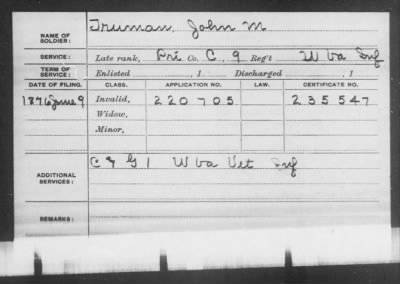 NAME OF SOLDIER: Truman, John M
SERVICE: Late rank, Pri Co. C, 9 Reg't W Va Inf
TERM OF SERVICE: Enlisted , 1 Discharged , 1
DATE OF FILING. CLASS. APPLICATION NO. LAW. CERTIFICATE NO.
1876 June 9 Invalid, 220705 235547
Widow,
Minor,
C & G 1 W Va Vet Inf
ADDITIONAL SERVICES:
REMARKS: